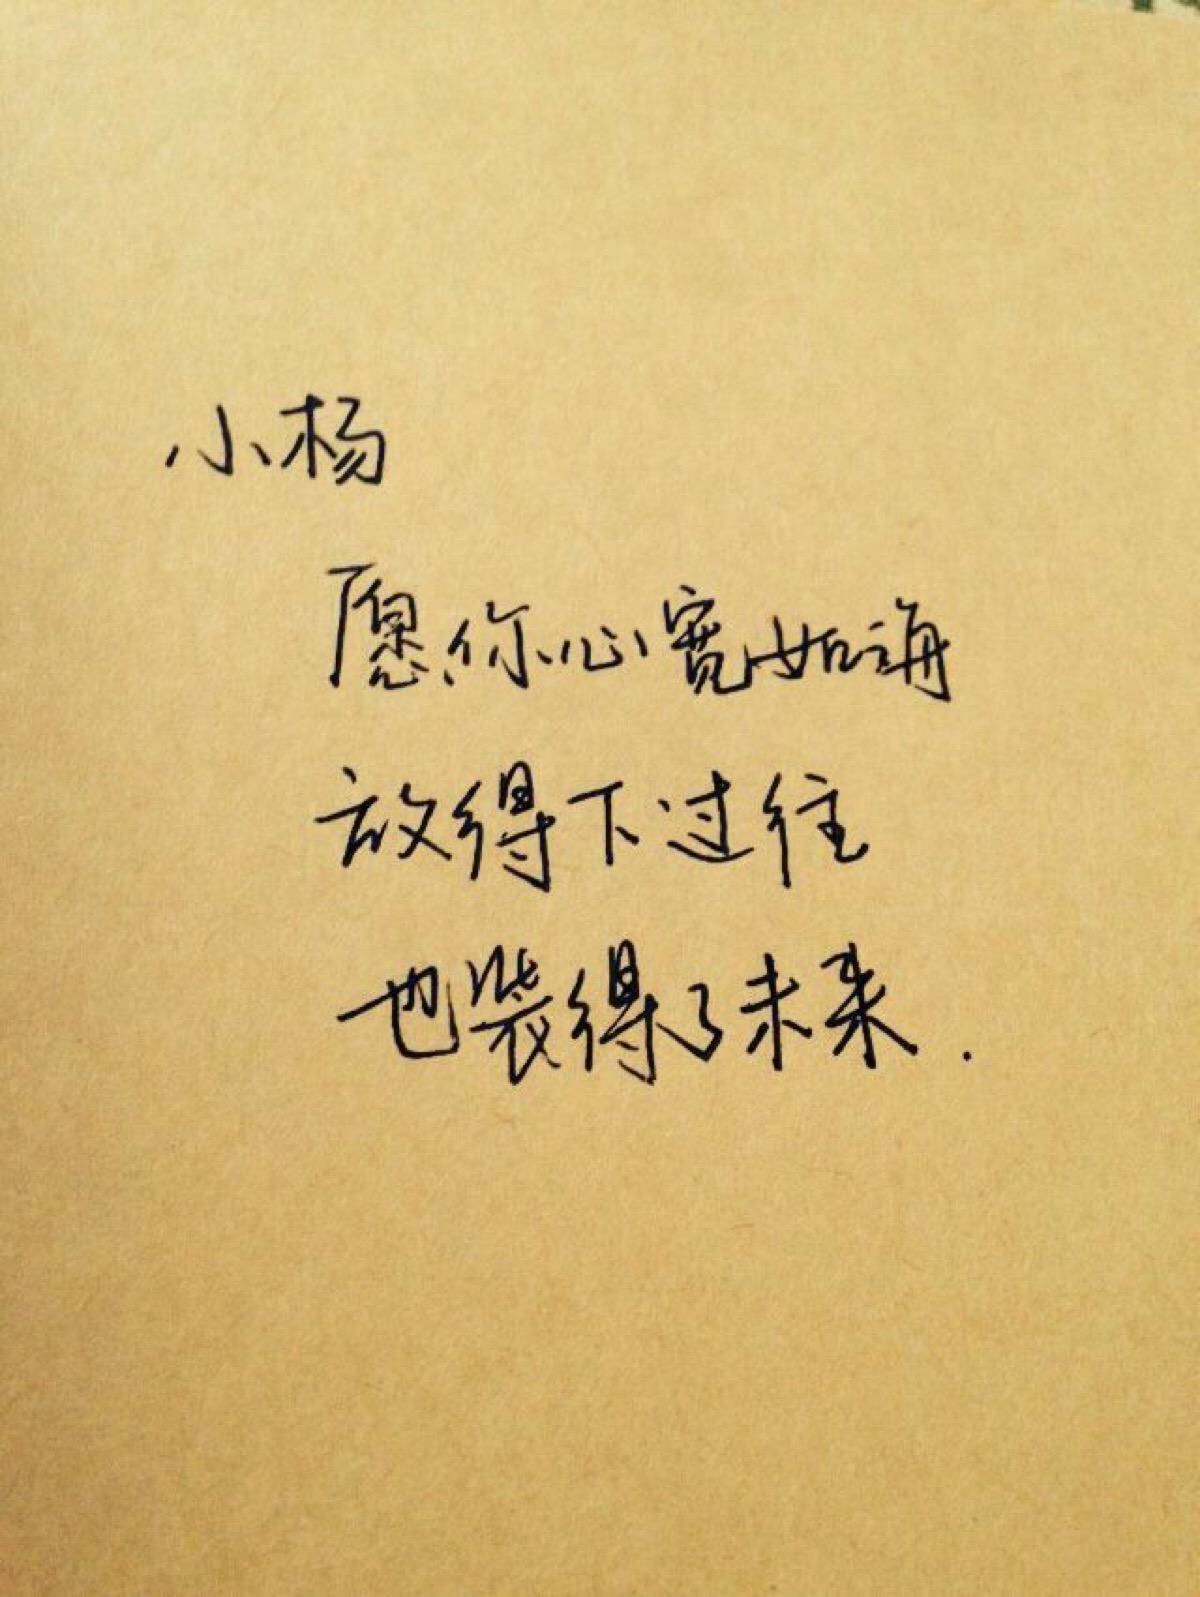 小杨
愿你心宽如海
放得下过往
也装得了未来.